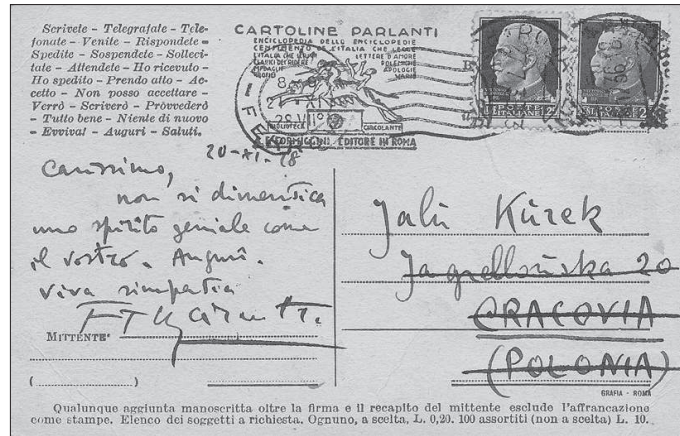 Scrivete – Telegrafate – Tele-
fonate – Venite – Rispondete –
Spedite – Sospendete – Solleci-
tate – Attendete – Ho ricevuto –
Ho spedito – Prendo atto – Ac-
cetto – Non posso accettare –
Verrò – Scriverò – Provvederò
– Tutto bene – Niente di nuovo
– Evviva! – Auguri – Saluti.
CARTOLINE PARLANTI
ENCICLOPEDIA DELLE ENCICLOPEDIE
LETTERE D'AMORE
POLEMICHE
APOLOGIE
VARIE
BIBLIOTECA CIRCOLANTE
FORMIGGINI EDITORE IN ROMA
20-XI-
Carissimo,
non si dimentica
uno spirito geniale come
il vostro. Auguri.
viva simpatia
F T Marinetti.
MITTENTE
Jalu Kurek
Jagiellońska 20
CRACOVIA
(POLONIA)
GRAFIA - ROMA
Qualunque aggiunta manoscritta oltre la firma e il recapito del mittente esclude l'affrancazione
come stampe. Elenco dei soggetti a richiesta. Ognuno, a scelta, L. 0,20. 100 assortiti (non a scelta) L. 10.